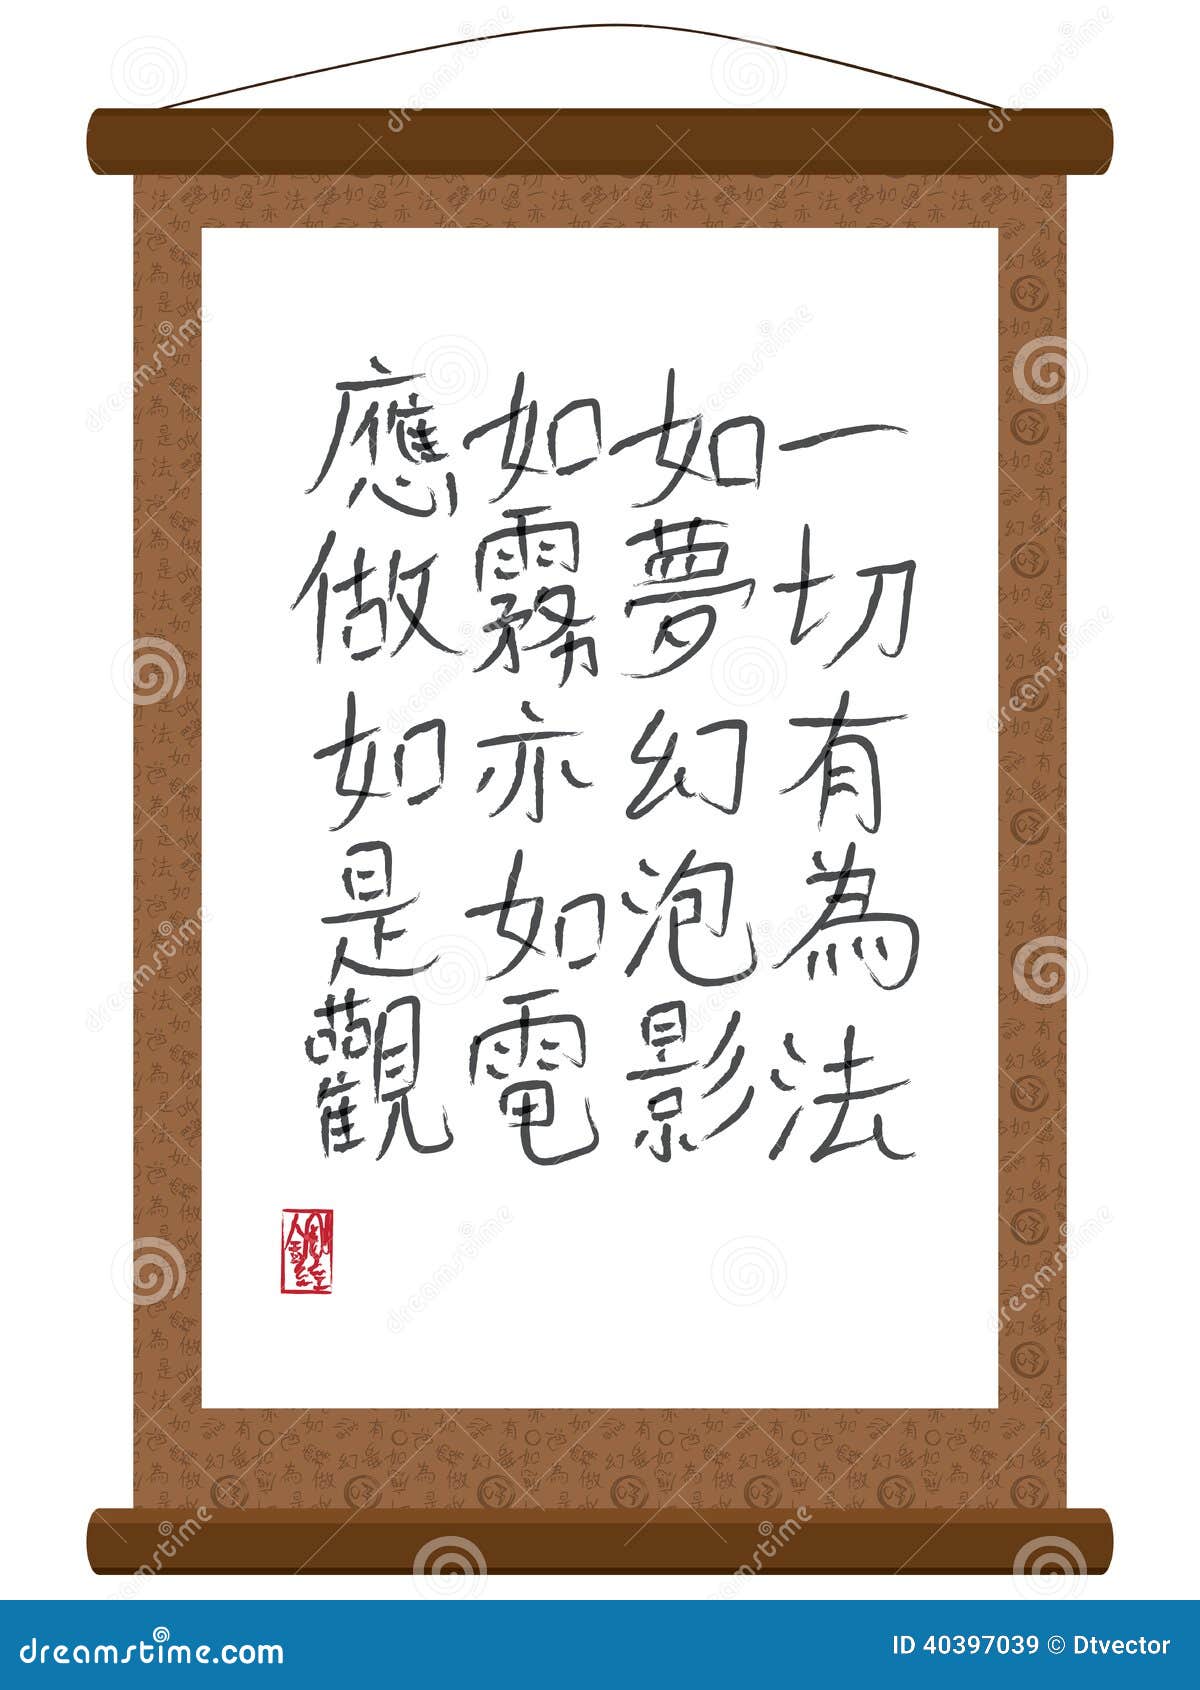 一切有為法
如夢幻泡影
如霧亦如電
應做如是觀
dreamstime.com
ID 40397039 © Dtvector